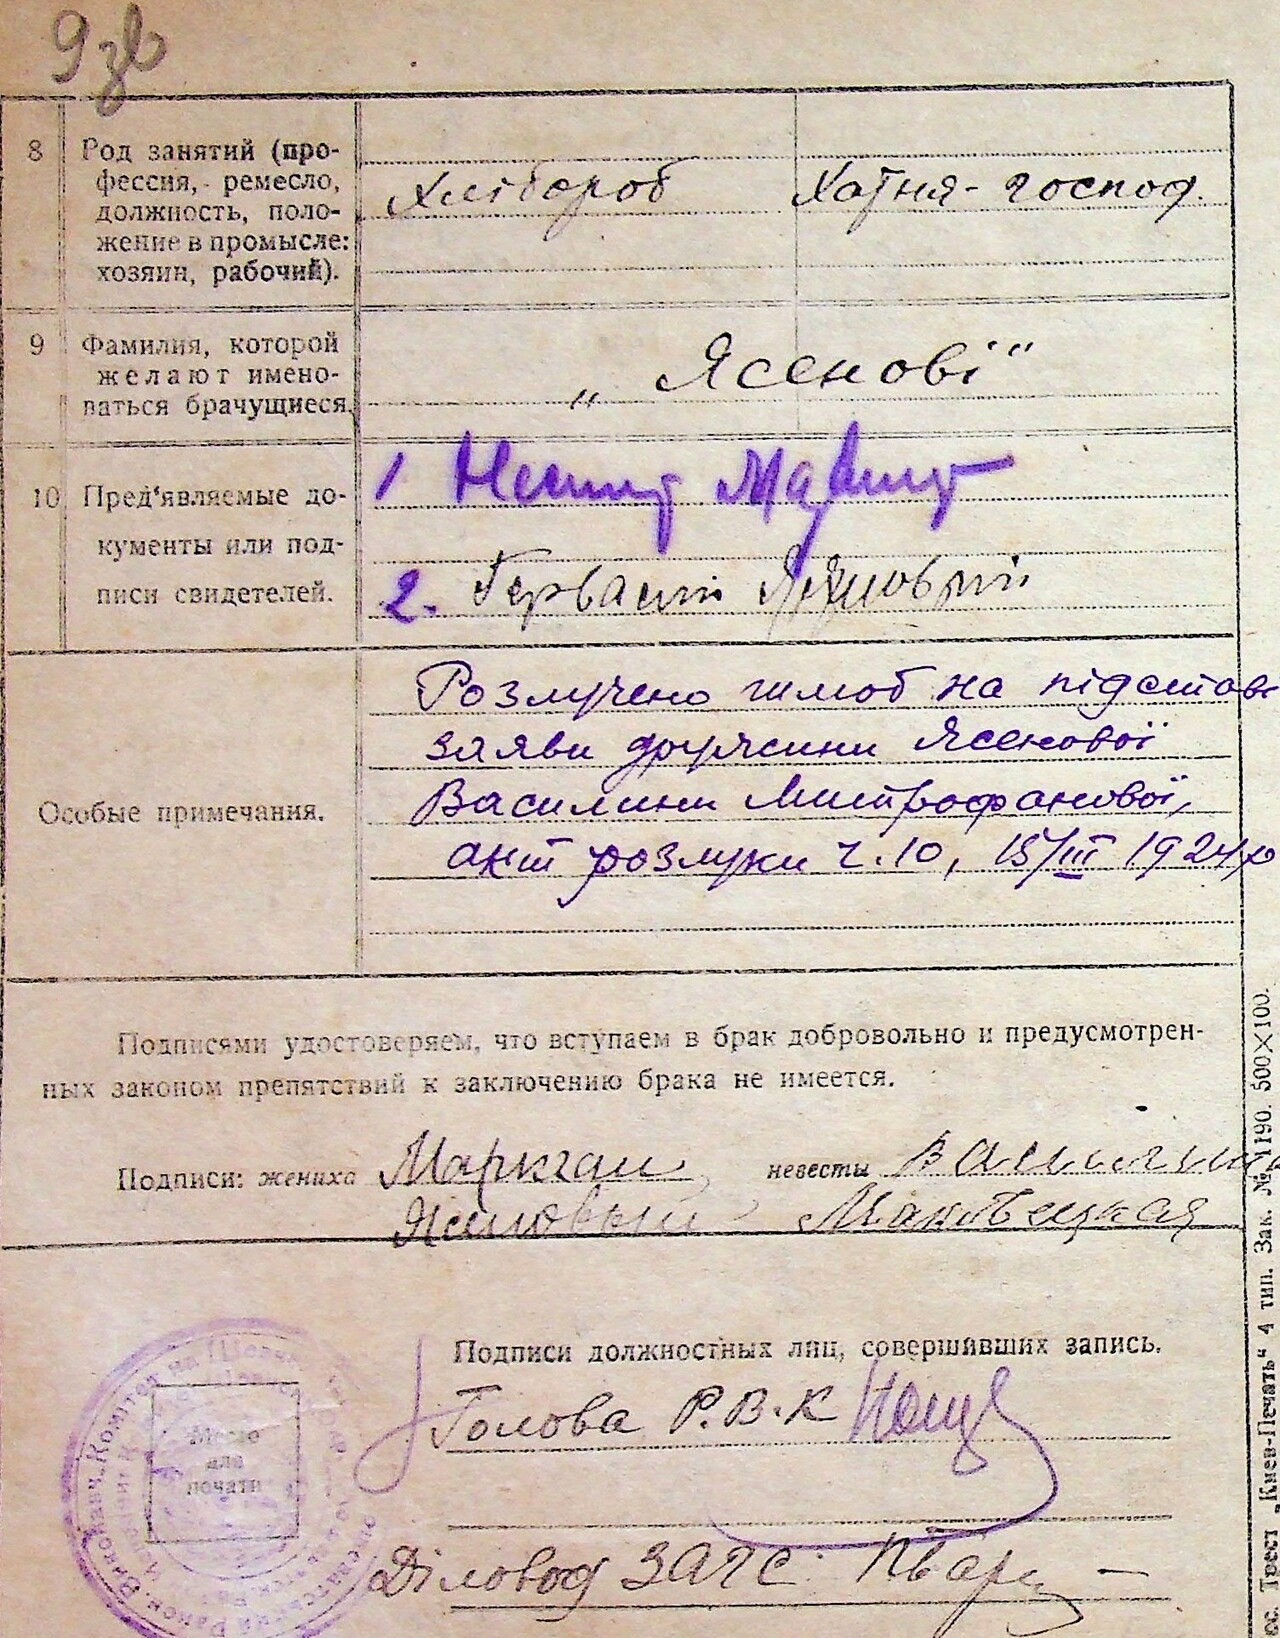 9 зв
8
Род занятий (про-
фессия, ремесло,
должность, поло-
жение в промысле:
хозяин, рабочий).
Хлібороб
Хатня - господ.
9
Фамилия, которой
желают имено-
ваться брачущиеся.
„ Ясенові "
10
Пред'являемые до-
кументы или под-
писи свидетелей.
1
2. Гервасий
Особые примечания.
Розлучено шлюб на підставі
заяви дружини Ясенової
Василини Митрофанової,
акт розлуки ч. 10, 15/III 1924 р
Подписями удостоверяем, что вступаем в брак добровольно и предусмотрен-
ных законом препятствий к заключению брака не имеется.
Подписи: жениха Маркиан невесты Василина
Ясеновый Маковецкая
Подписи должностных лиц, совершивших запись.
Голова Р.В.К
Место
для
печати
Діловод ЗАГС
Трест „Киев-Печать" 4 тип. Зак. № 1190. 500×100.